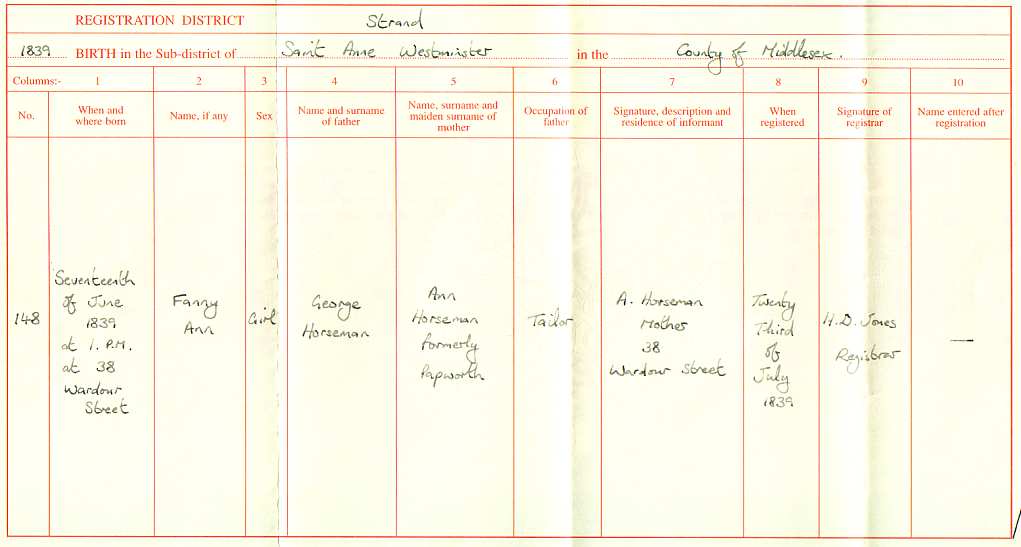 REGISTRATION DISTRICT Strand
1839 BIRTH in the Sub-district of Saint Anne Westminster in the County of Middlesex.
Columns:- 1 2 3 4 5 6 7 8 9 10
No.
When and
where born
Name, if any
Sex
Name and surname
of father
Name, surname and
maiden surname of
mother
Occupation of
father
Signature, description and
residence of informant
When
registered
Signature of
registrar
Name entered after
registration
148
Seventeenth
of June
1839
at 1. P.M.
at 38
Wardour
Street
Fanny
Ann
Girl
George
Horseman
Ann
Horseman
formerly
Papworth
Tailor
A. Horseman
Mother
38
Wardour Street
Twenty
Third
of
July
1839
H.D. Jones
Registrar
—